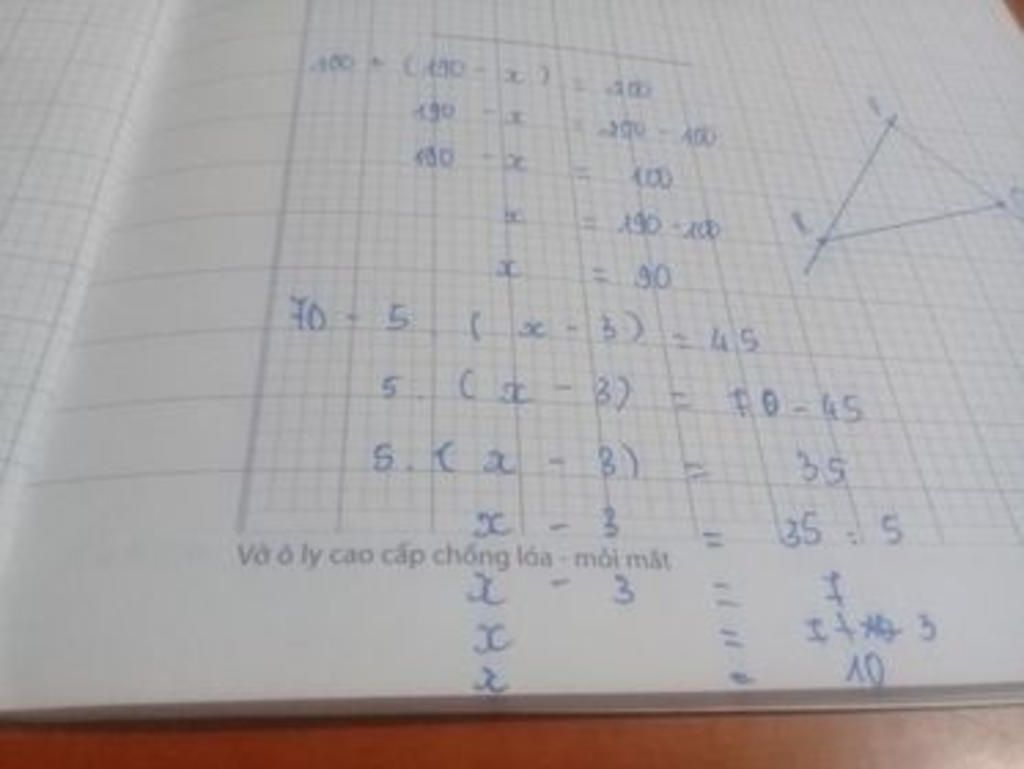 100 + (190 - x) = 200
190 - x = 200 - 100
190 - x = 100
x = 190 - 100
x = 90
70 - 5 . ( x - 3 ) = 45
5 . ( x - 3 ) = 70 - 45
5 . ( x - 3 ) = 35
x - 3 = 35 : 5
Vở ô ly cao cấp chống lóa - mỏi mắt
x - 3 = 7
x = 7 + 3
x = 10